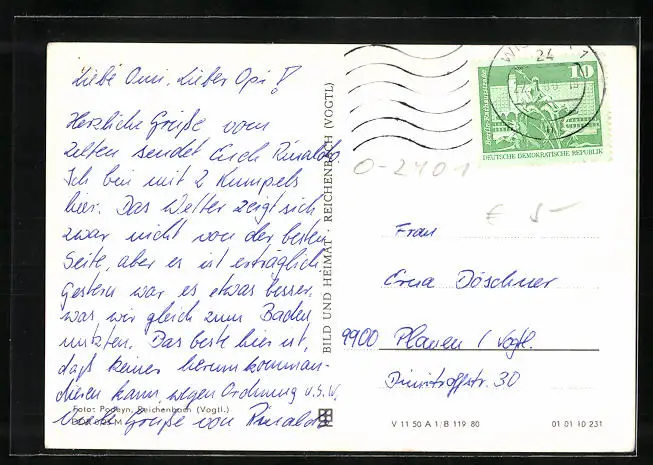 Liebe Omi, Lieber Opi!
Herzliche Grüße vom
Zelten sendet Euch Rinaldo.
Ich bin mit 2 Kumpels
hier. Das Wetter zeigt sich
zwar nicht von der besten
Seite, aber es ist erträglich.
Gestern war es etwas besser,
was wir gleich zum Baden
nutzten. Das beste hier ist,
daß keiner herumkomman-
dieren kann, wegen Ordnung u.s.w.
Grüße von Rinaldo
Foto: Podeyn, Reichenbach (Vogtl.)
BILD UND HEIMAT · REICHENBACH (VOGTL)
24
10
Berlin-Rathausstraße
DEUTSCHE DEMOKRATISCHE REPUBLIK
0-2401
€ 5-
Frau
Erna Döschner
9900 Plauen / Vogtl.
Dimitroffstr. 30
V 11 50 A 1/B 119 80
01 01 10 231